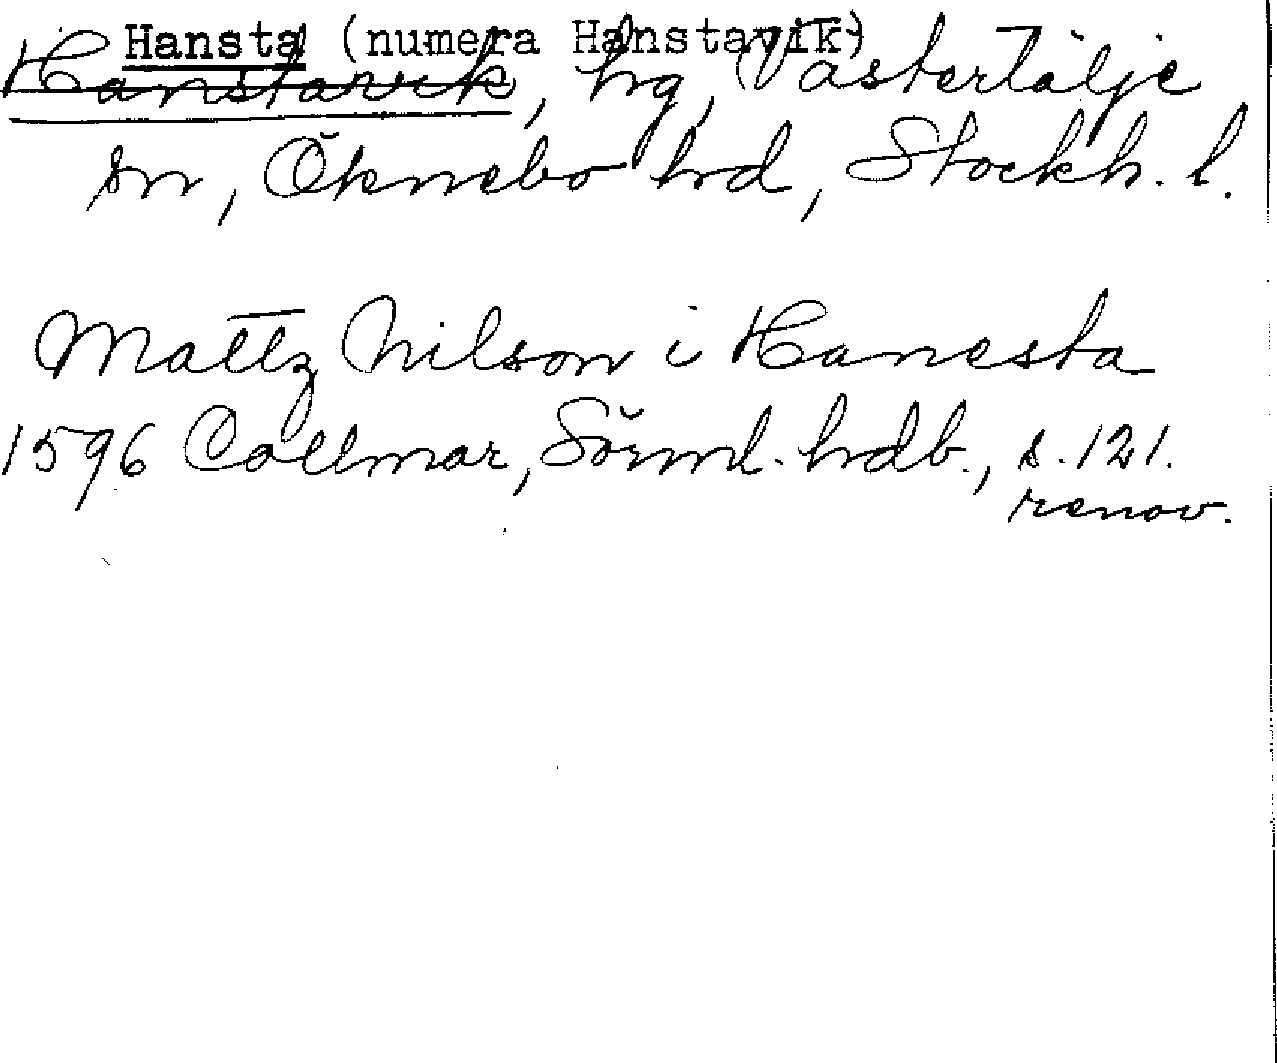 Hansta (numera Hanstavik)
Hanstavik, hg, Västertälje
sn, Öknebo hd, Stockh. l.
Mattz Nilson i Hanesta
1596 Collmar, Sörml. hdb., s. 121.
renov.